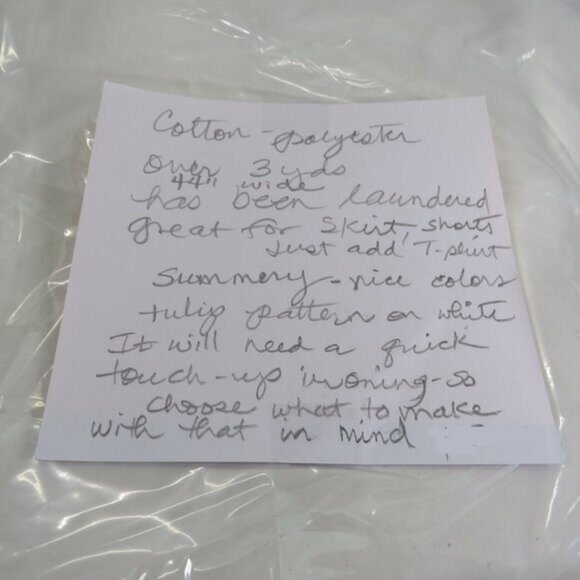 Cotton - polyester
Over 3 yds
44" wide
has been laundered
great for skirt, shorts
Just add T-shirt
Summery - nice colors
tulip pattern on white
It will need a quick
touch-up ironing - so
choose what to make
with that in mind